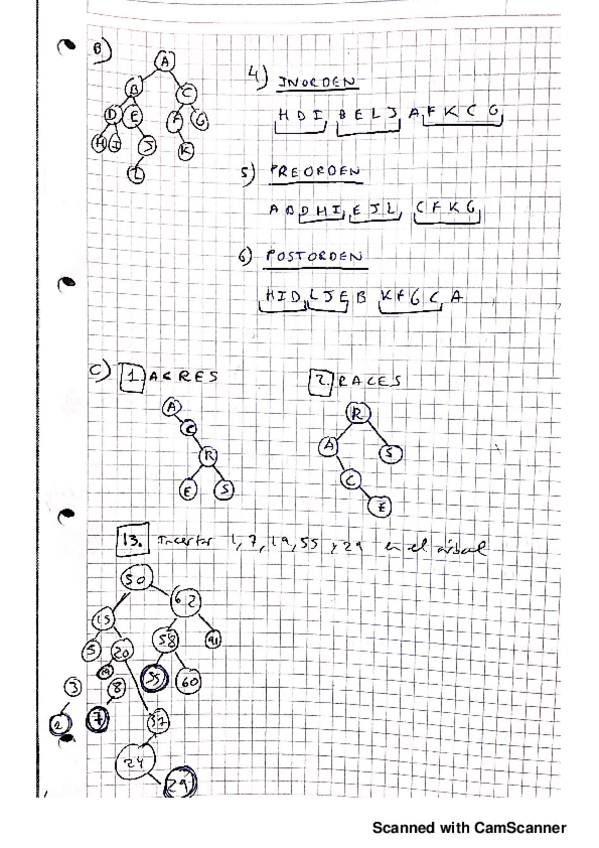 B)
A
B C
D E F G
H I J K
L
4) INORDEN
H D I B E L J A F K C G
5) PREORDEN
A B D H I E J L C F K G
6) POSTORDEN
H I D L J E B K F G C A
C) 1. ACRES
A
C
R
E S
2. RACES
R
A S
C
E
13. Insertar 1, 7, 19, 55 y 29 en el árbol
50
15 62
5 20 58 91
3 8 19 55 60
7 37
24
29
Scanned with CamScanner